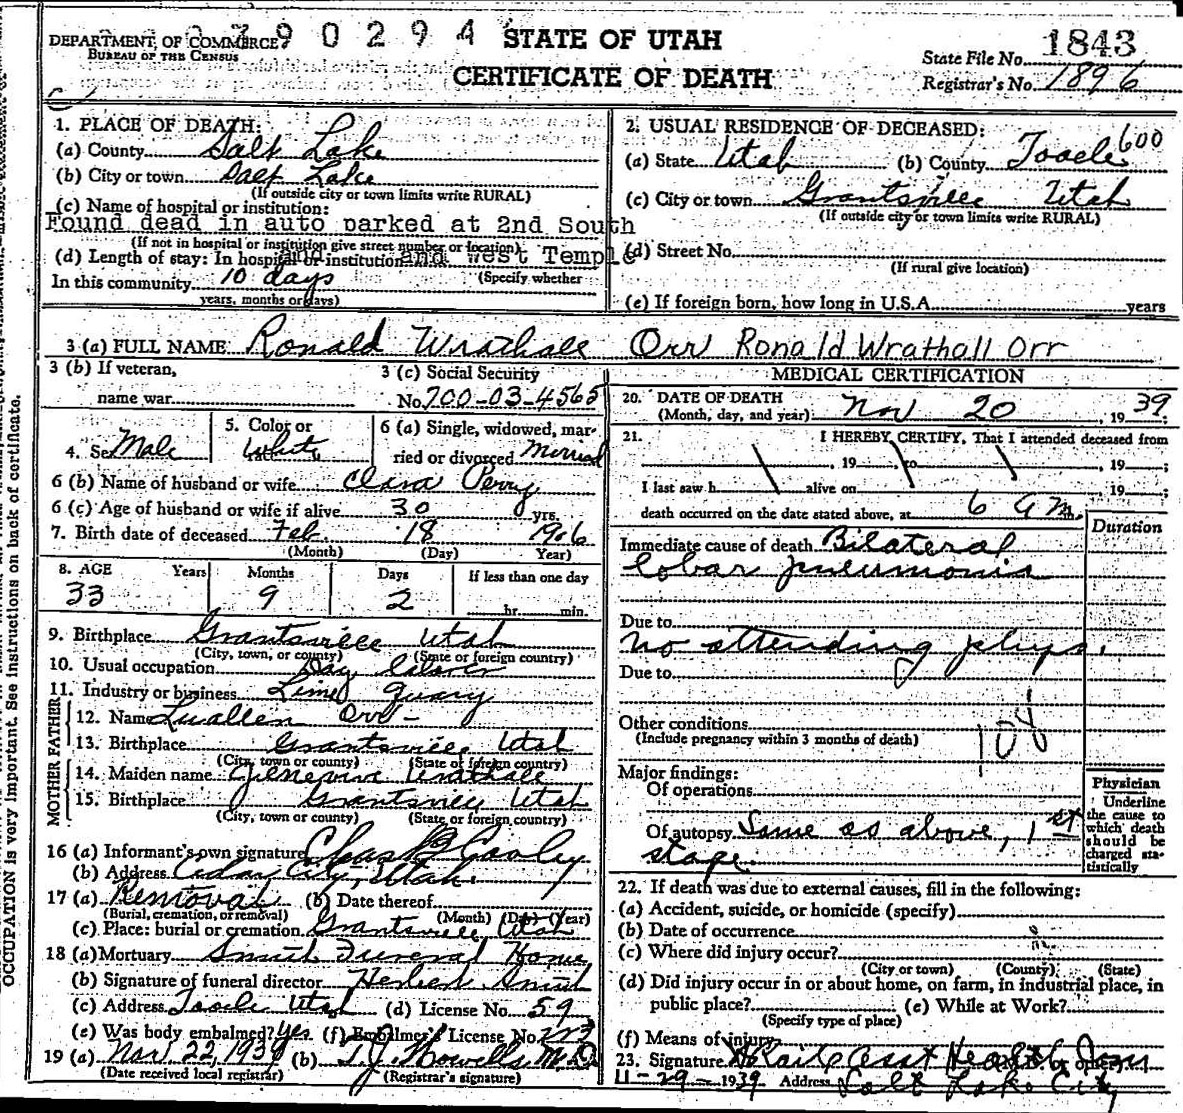 0390294
DEPARTMENT OF COMMERCE
BUREAU OF THE CENSUS
STATE OF UTAH
CERTIFICATE OF DEATH
State File No. 1843
Registrar's No. 1896
1. PLACE OF DEATH:
(a) County Salt Lake
(b) City or town Salt Lake
(If outside city or town limits write RURAL)
(c) Name of hospital or institution:
Found dead in auto parked at 2nd South
(If not in hospital or institution give street number or location)
and West Temple
(d) Length of stay: In hospital or institution
(Specify whether
In this community 10 days
years, months or days)
2. USUAL RESIDENCE OF DECEASED:
600
(a) State Utah (b) County Tooele
(c) City or town Grantsville Utah
(If outside city or town limits write RURAL)
(d) Street No.
(If rural give location)
(e) If foreign born, how long in U.S.A. years
3 (a) FULL NAME Ronald Wrathall Orr Ronald Wrathall Orr
3 (b) If veteran,
name war
3 (c) Social Security
No. 700-03-4565
4. Sex Male
5. Color or
White
6 (a) Single, widowed, mar-
ried or divorced Married
6 (b) Name of husband or wife Clara Perry
6 (c) Age of husband or wife if alive 30 yrs.
7. Birth date of deceased Feb. 18 1906
(Month) (Day) Year)
8. AGE Years Months Days If less than one day
33 9 2 hr. min.
9. Birthplace Grantsville Utah
(City, town, or county) (State or foreign country)
10. Usual occupation Day Labor
11. Industry or business Lime Quary
FATHER
12. Name Luallen Orr -
13. Birthplace Grantsville Utah
(City, town or county) (State of foreign country)
MOTHER
14. Maiden name Genevive Wrathall
15. Birthplace Grantsville Utah
(City, town or county) (State or foreign country)
16 (a) Informant's own signature Chas B Cooley
(b) Address Cedar City, Utah.
17 (a) Removal (b) Date thereof
(Burial, cremation, or removal) (Month) (Day) (Year)
(c) Place: burial or cremation Grantsville Utah
18 (a) Mortuary Smith Funeral Home
(b) Signature of funeral director Herbert Smith
(c) Address Tooele Utah (d) License No. 59
(e) Was body embalmed? Yes (f) Embalmer's License No. 223
19 (a) Nov 22, 1939 (b) T.J. Howells M.D.
(Date received local registrar) (Registrar's signature)
MEDICAL CERTIFICATION
20. DATE OF DEATH
(Month, day, and year): Nov 20, 1939;
21. I HEREBY CERTIFY, That I attended deceased from
, 19 , to , 19 ;
I last saw h alive on , 19 ;
death occurred on the date stated above, at 6 a m.
Duration
Immediate cause of death Bilateral
lobar pneumonia
Due to
no attending phys.
Due to
Other conditions
(Include pregnancy within 3 months of death)
108
Major findings:
Of operations
Of autopsy Same as above, 1st
stage.
Physician
Underline
the cause to
which death
should be
charged sta-
tistically
22. If death was due to external causes, fill in the following:
(a) Accident, suicide, or homicide (specify)
(b) Date of occurrence
(c) Where did injury occur?
(City or town) (County) (State)
(d) Did injury occur in or about home, on farm, in industrial place, in
public place? (e) While at Work?
(Specify type of place)
(f) Means of injury
23. Signature Asst Health Com
11-29-1939 Address Salt Lake City
OCCUPATION is very important. See instructions on back of certificate.